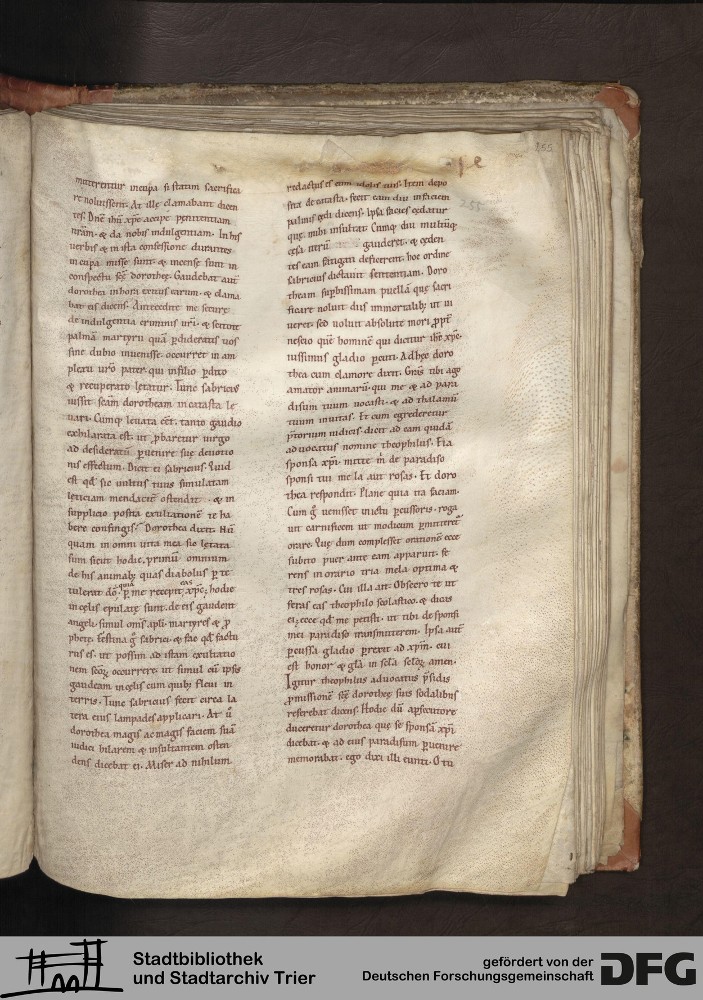 mitterentur in cupa si statim sacrifica
re noluissent. At ille clamabant dicen
tes. Dñe ihu xpe accipe penitentiam
nrãm. & da nobis indulgentiam. In his
uerbis & in ista confessione durantes
in cupa misse sunt. & incense sunt in
conspectu scę dorotheę. Gaudebat aut
dorothea in hora exitus earum. & clama
bat eis dicens. Antecedite me secure
de indulgentia criminis uri. & scitote
palmã martyrii quã pdideratis uos
sine dubio inuenisse. occurret in am
plexu uro pater. qui in filio pdito
& recuperato letatur. Tunc sabricius
iussit scam dorotheam in catasta le
uari. Cumq leuata eet. tanto gaudio
exhilarata est. ut pbaretur uirgo
ad desideratũ puenire suę deuotio
nis effectum. Dicit ei sabricius. Quid
est qd sic uultus tuus simulatam
lęticiam mendacit ostendit. & in
supplicio posita exultationẽ te ha
bere confingis? Dorothea dixit. Nũ
quam in omni uita mea sic lętata
sum sicut hodie. primũ omnium
de his animab; quas diabolus p te
tulerat dõ. quia p me recepit eas xpc; hodie
in cęlis epulatę sunt. de eis gaudent
angeli. simul oms apli. martyres & p
phetę. Festina g sabrici. & fac qd factu
rus es. ut possim ad istam exultatio
nem scõz occurrere. ut simul cũ ipsis
gaudeam in cęlis cum quib; fleui in
terris. Tunc sabricius fecit circa la
tera eius lampades applicari. At ũ
dorothea magis ac magis faciem suã
iudici hilarem & insultantem osten
dens dicebat ei. Miser ad nihilum
255
redactus es cum idolis tuis. Item depo
sita de catasta. fecit eam diu in faciem
palmis cędi dicens. Ipsa facies cędatur
quę mihi insultat. Cumq diu multũq
cęsa gauderet. & ceden
tes eam fatigati deficerent. hoc ordine
sabricius dictauit sententiam. Doro
theam supbissimam puellã quę sacri
ficare noluit diis immortalib; ut ui
ueret. sed uoluit absolute mori ppt
nescio quẽ hominẽ qui dicitur ihc xpc.
iussimus gladio pcuti. Ad hęc doro
thea cum clamore dixit. Grãs tibi ago
amator animarũ. qui me & ad para
disum tuum uocasti. & ad thalamũ
tuum inuitas. Et cum egrederetur
ptorium iudicis. dicit ad eam quidã
aduocatus nomine theophilus. Eia
sponsa xpi. mitte m de paradiso
sponsi tui me la aut rosas. Et doro
thea respondit. Plane quia ita faciam.
Cum g uenisset in ictu pcussoris. roga
uit carnificem ut modicum pmitteret
orare. Quę dum complesset orationẽ ecce
subito puer ante eam apparuit. fe
rens in orario tria mela optima &
tres rosas. Cui illa ait. Obsecro te ut
feras eas theophilo scolastico. & dicas
ei; ecce qd me petisti. ut tibi de sponsi
mei paradiso transmitterem. Ipsa aut
pcussa gladio prexit ad xpm. cui
est honor & gla in scla sclõz amen.
Igitur theophilus aduocatus psidis
pmissionẽ scę dorotheę suis sodalibus
referebat dicens. Hodie dũ a pcutore
duceretur dorothea quę se sponsã xpi
dicebat. & ad eius paradisum puenire
memorabat. ego dixi illi eunti. O tu
255
Stadtbibliothek
und Stadtarchiv Trier
gefördert von der
Deutschen Forschungsgemeinschaft
DFG